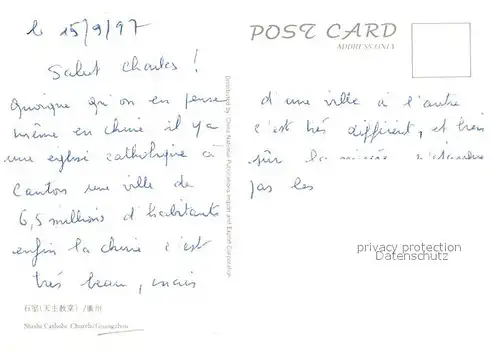 le 15/9/97
Salut Charles !
Quoique qu'on en pense
même en chine il y a
une église catholique à
Canton une ville de
6,5 millions d'habitants
enfin la chine c'est
très beau, mais
石室(天主教堂)/廣州
Shishi Catholic Church/Guangzhou
Distributed by China National Publications Import and Export Corporation
POST CARD
ADDRESS ONLY
d'une ville à l'autre
c'est très différent, et bien
sûr la
pas les
privacy protection
Datenschutz